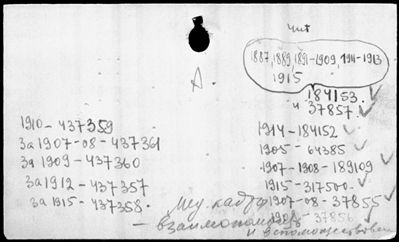 чит
1887, 1889, 1891-1909, 1911-1913
1915
А.
184153.
и 37857.
1910-437359
За 1907-08-437361
За 1909-437360
За 1912-437357
За 1915-437358.
1914-184152
1905-64385
1907-1908-189109
1915-317500-
1907-08-37855
37856
и вспомоществован